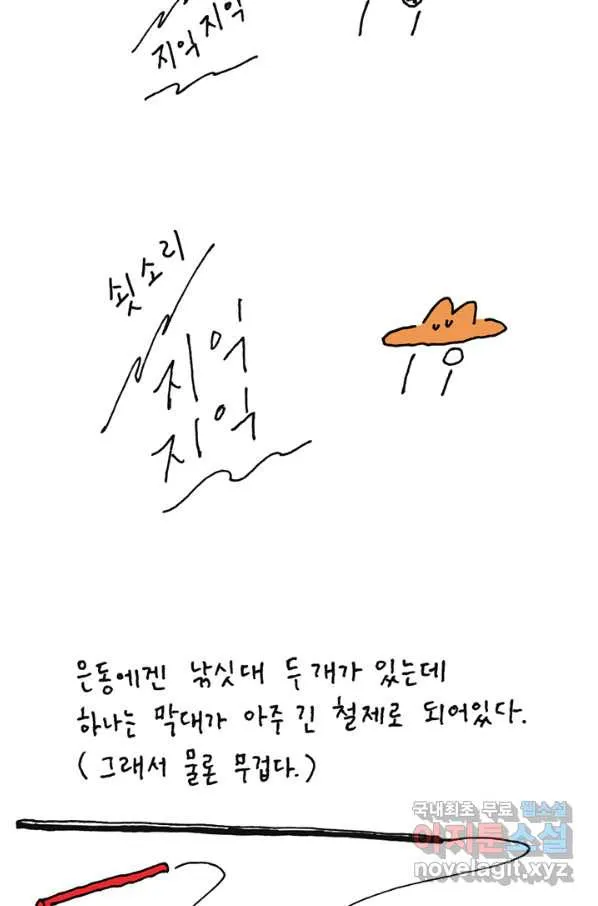 지익 지익
쇳소리
지익
지익
은동에겐 낚싯대 두 개가 있는데
하나는 막대가 아주 긴 철제로 되어있다.
(그래서 물론 무겁다.)
국내최초 무료 웹소설
이지툰소설
novelagit.xyz